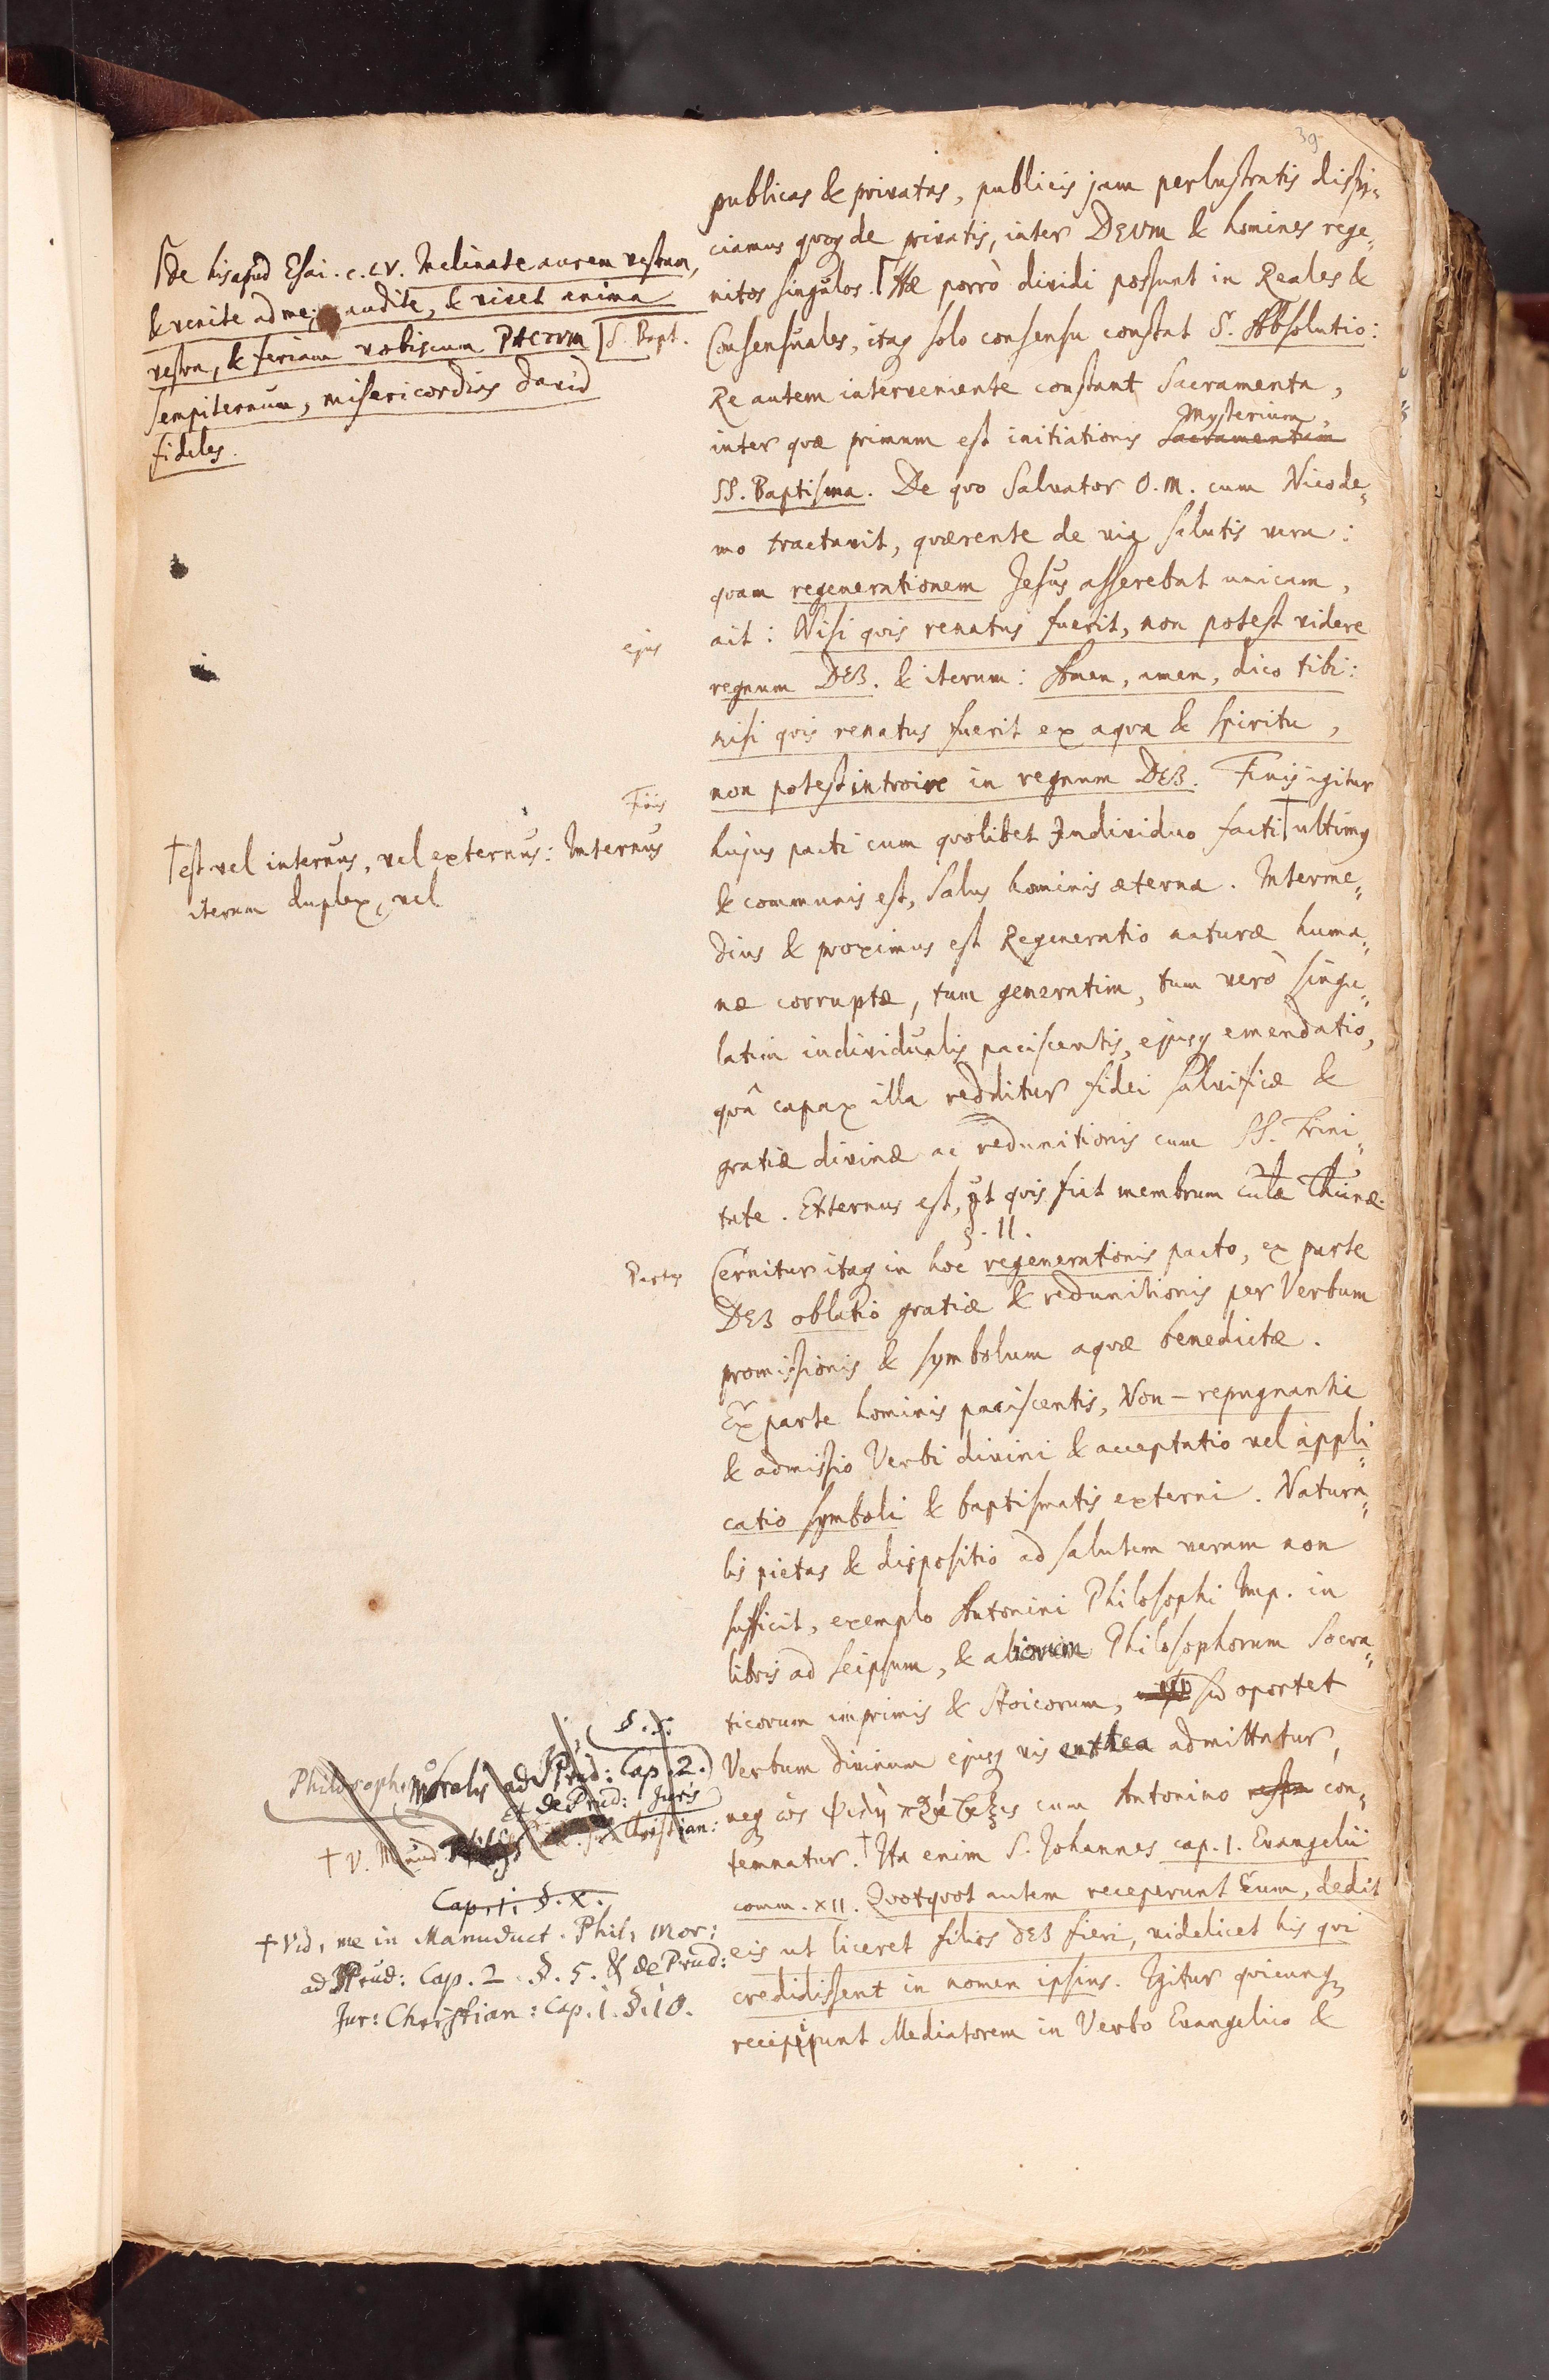 39
publicas & privatas, publicis jam perlustratis dispi¬
ciamus quoq de privatis, inter DEUM & homines rege¬
nitos singulos. Hæ porrò dividi possunt in Reales &
Consensuales, itaq solo consensu constat S. Absolutio:
Re autem interveniente constant Sacramenta,
Mysterium
inter quæ primum est initiationis Sacramentum
SS. Baptisma. De quo Salvator O. M. cum Nicode¬
mo tractavit, quærente de via salutis vera:
quam regenerationem Jesus asserebat unicam,
ait: Nisi quis renatus fuerit, non potest videre
regnum DEI. & iterum: Amen, amen, dico tibi:
nisi quis renatus fuerit ex aqva & spiritu,
non potest introire in regnum DEI. Finis igitur
hujus pacti cum quolibet Individuo facti † ultimus
& communis est, Salus hominis æterna. Interme¬
dius & proximus est Regeneratio naturæ huma¬
næ corruptæ, tum generatim, tum verò singu¬
latim individualis paciscentis, ejusq emendatio,
quâ capax illa redditur fidei salvificæ &
gratiæ divinæ ac redunitionis cum SS. Trini¬
tate. Externus est, ut quis fiat membrum
§. II.
Cernitur itaq in hoc regenerationis pacto, ex parte
DEI oblatio gratiæ & redunitionis per Verbum
promissionis & symbolum aqvæ benedictæ.
Ex parte hominis paciscentis, Non-repugnantia
& admissio Verbi divini & acceptatio vel appli¬
catio symboli & baptismatis externi. Natura¬
lis pietas & dispositio ad salutem veram non
sufficit, exemplo Antonini Philosophi Imp. in
libris ad seipsum, & aliorum Philosophorum Socra¬
ticorum imprimis & Stoicorum, sed oportet
Verbum divinum ejusq vis enthea admittatur,
neq ὡς ψιλὴ cum Antonino con¬
temnatur. † Ita enim S. Johannes cap. 1. Evangelii
comm. XII. Quotquot autem receperunt Eum, dedit
eis ut liceret filios DEI fieri, videlicet his qui
credidissent in nomen ipsius. Igitur quicunq
recipiunt Mediatorem in Verbo Evangelico &
de his apud Esai. c. LV. Inclinate aurem vestram,
& venite ad me; audite, & vivet anima
vestra, & feriam vobiscum PACTUM S. Bapt.
sempiternum, misericordias David
fideles.
ejus
Finis
† est vel internus, vel externus: Internus
iterum duplex, vel
Partes
§. 5.
Philosoph. Moralis ad Prud: Cap. 2.
& de Prud: Juris
† V. Manud. Christian:
Cap. 1. §. X.
† Vid. me in Manuduct. Phil. Mor:
ad Prud: Cap. 2. §. 5. & de Prud:
Jur: Christian: Cap. 1. §. 10.